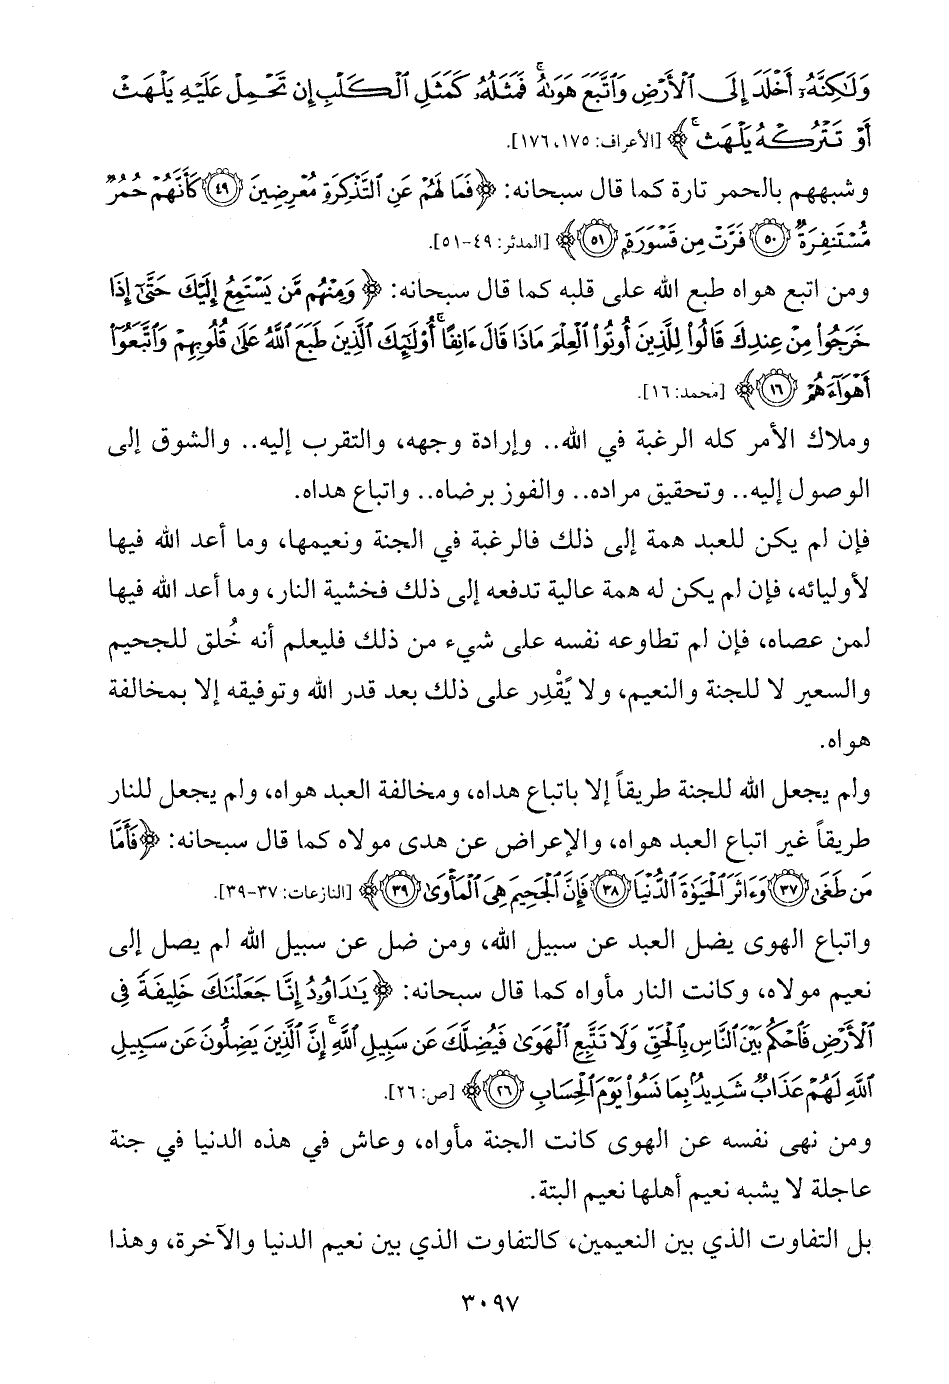 وَلَٰكِنَّهُۥٓ أَخْلَدَ إِلَى ٱلْأَرْضِ وَٱتَّبَعَ هَوَىٰهُ ۚ فَمَثَلُهُۥ كَمَثَلِ ٱلْكَلْبِ إِن تَحْمِلْ عَلَيْهِ يَلْهَثْ
أَوْ تَتْرُكْهُ يَلْهَث ۚ ﴾ [الأعراف: ١٧٥، ١٧٦].
وشبههم بالحمر تارة كما قال سبحانه: ﴿ فَمَا لَهُمْ عَنِ ٱلتَّذْكِرَةِ مُعْرِضِينَ (٤٩) كَأَنَّهُمْ حُمُرٌ
مُّسْتَنفِرَةٌ (٥٠) فَرَّتْ مِن قَسْوَرَةٍۭ (٥١) ﴾ [المدثر: ٤٩-٥١].
ومن اتبع هواه طبع الله على قلبه كما قال سبحانه: ﴿ وَمِنْهُم مَّن يَسْتَمِعُ إِلَيْكَ حَتَّىٰٓ إِذَا
خَرَجُوا۟ مِنْ عِندِكَ قَالُوا۟ لِلَّذِينَ أُوتُوا۟ ٱلْعِلْمَ مَاذَا قَالَ ءَانِفًا ۚ أُو۟لَٰٓئِكَ ٱلَّذِينَ طَبَعَ ٱللَّهُ عَلَىٰ قُلُوبِهِمْ وَٱتَّبَعُوٓا۟
أَهْوَآءَهُمْ (١٦) ﴾ [محمد: ١٦].
وملاك الأمر كله الرغبة في الله.. وإرادة وجهه، والتقرب إليه.. والشوق إلى
الوصول إليه.. وتحقيق مراده.. والفوز برضاه.. واتباع هداه.
فإن لم يكن للعبد همة إلى ذلك فالرغبة في الجنة ونعيمها، وما أعد الله فيها
لأوليائه، فإن لم يكن له همة عالية تدفعه إلى ذلك فخشية النار، وما أعد الله فيها
لمن عصاه، فإن لم تطاوعه نفسه على شيء من ذلك فليعلم أنه خُلق للجحيم
والسعير لا للجنة والنعيم، ولا يَقْدِر على ذلك بعد قدر الله وتوفيقه إلا بمخالفة
هواه.
ولم يجعل الله للجنة طريقاً إلا باتباع هداه، ومخالفة العبد هواه، ولم يجعل للنار
طريقاً غير اتباع العبد هواه، والإعراض عن هدى مولاه كما قال سبحانه: ﴿ فَأَمَّا
مَن طَغَىٰ (٣٧) وَءَاثَرَ ٱلْحَيَوٰةَ ٱلدُّنْيَا (٣٨) فَإِنَّ ٱلْجَحِيمَ هِىَ ٱلْمَأْوَىٰ (٣٩) ﴾ [النازعات: ٣٧-٣٩].
واتباع الهوى يضل العبد عن سبيل الله، ومن ضل عن سبيل الله لم يصل إلى
نعيم مولاه، وكانت النار مأواه كما قال سبحانه: ﴿ يَٰدَاوُۥدُ إِنَّا جَعَلْنَٰكَ خَلِيفَةً فِى
ٱلْأَرْضِ فَٱحْكُم بَيْنَ ٱلنَّاسِ بِٱلْحَقِّ وَلَا تَتَّبِعِ ٱلْهَوَىٰ فَيُضِلَّكَ عَن سَبِيلِ ٱللَّهِ ۚ إِنَّ ٱلَّذِينَ يَضِلُّونَ عَن سَبِيلِ
ٱللَّهِ لَهُمْ عَذَابٌ شَدِيدٌۢ بِمَا نَسُوا۟ يَوْمَ ٱلْحِسَابِ (٢٦) ﴾ [ص: ٢٦].
ومن نهى نفسه عن الهوى كانت الجنة مأواه، وعاش في هذه الدنيا في جنة
عاجلة لا يشبه نعيم أهلها نعيم البتة.
بل التفاوت الذي بين النعيمين، كالتفاوت الذي بين نعيم الدنيا والآخرة، وهذا
٣٠٩٧